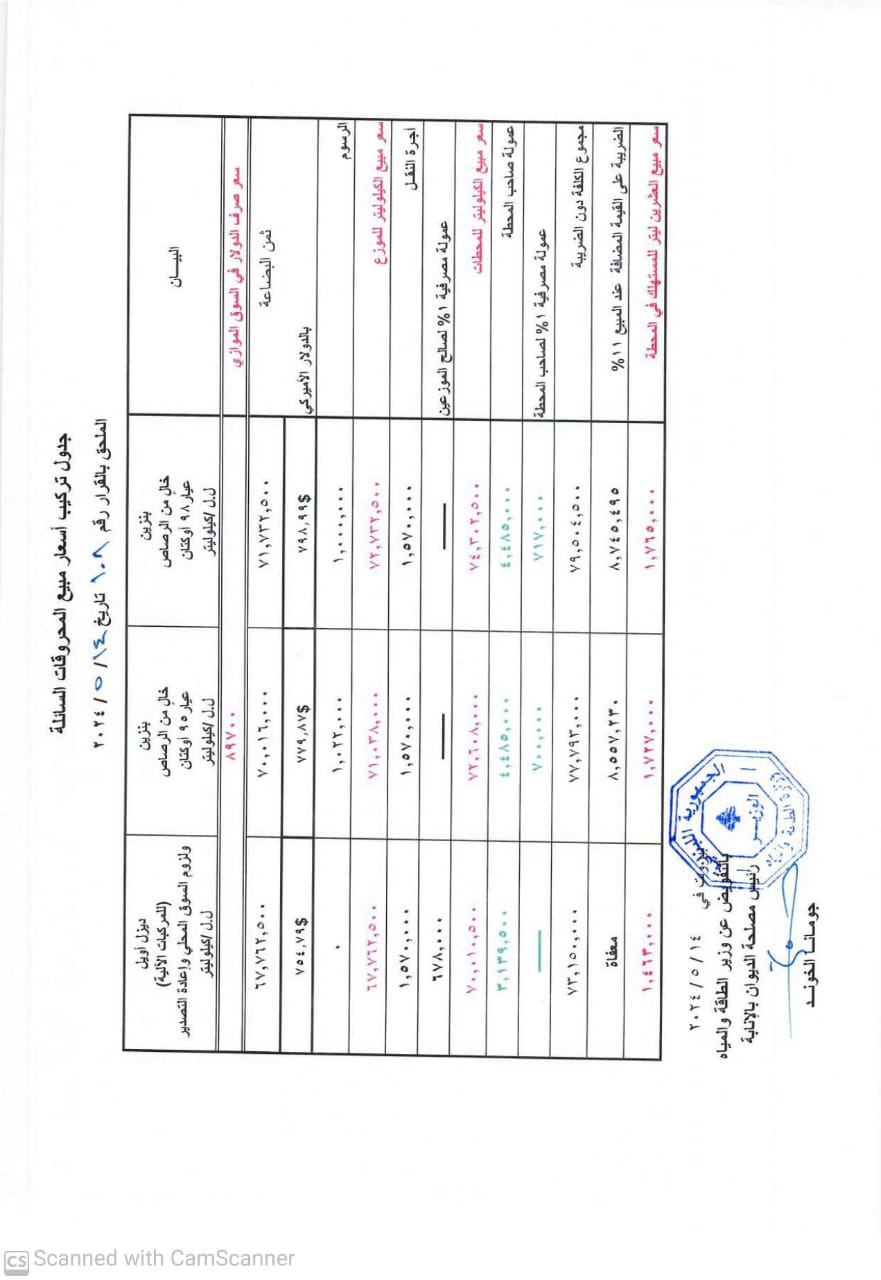 جدول تركيب أسعار مبيع المحروقات السائلة
الملحق بالقرار رقم ١٠٨ تاريخ ١٤/٥/٢٠٢٤
البيـــان
بنزين
خالٍ من الرصاص
عيار ٩٨ أوكتان
ل.ل/كيلوليتر
بنزين
خالٍ من الرصاص
عيار ٩٥ أوكتان
ل.ل/كيلوليتر
ديزل أويل
(للمركبات الآلية)
ولزوم السوق المحلي وإعادة التصدير
ل.ل/كيلوليتر
سعر صرف الدولار في السوق الموازي ٨٩٧٠٠
ثمن البضاعة ٧١,٧٣٢,٥٠٠ ٧٠,٠١٦,٠٠٠ ٦٧,٧٦٢,٥٠٠
بالدولار الأميركي ٧٩٨,٩٩$ ٧٧٩,٨٧$ ٧٥٤,٧٩$
الرسوم ١,٠٠٠,٠٠٠ ١,٠٢٢,٠٠٠ ٠
سعر مبيع الكيلوليتر للموزع ٧٢,٧٣٢,٥٠٠ ٧١,٠٣٨,٠٠٠ ٦٧,٧٦٢,٥٠٠
أجرة النقل ١,٥٧٠,٠٠٠ ١,٥٧٠,٠٠٠ ١,٥٧٠,٠٠٠
عمولة مصرفية ١% لصالح الموزعين — — ٦٧٨,٠٠٠
سعر مبيع الكيلوليتر للمحطات ٧٤,٣٠٢,٥٠٠ ٧٢,٦٠٨,٠٠٠ ٧٠,٠١٠,٥٠٠
عمولة صاحب المحطة ٤,٤٨٥,٠٠٠ ٤,٤٨٥,٠٠٠ ٣,١٣٩,٥٠٠
عمولة مصرفية ١% لصاحب المحطة ٧١٧,٠٠٠ ٧٠٠,٠٠٠ —
مجموع الكلفة دون الضريبة ٧٩,٥٠٤,٥٠٠ ٧٧,٧٩٣,٠٠٠ ٧٣,١٥٠,٠٠٠
الضريبة على القيمة المضافة عند المبيع ١١% ٨,٧٤٥,٤٩٥ ٨,٥٥٧,٢٣٠ معفاة
سعر مبيع العشرين ليتر للمستهلك في المحطة ١,٧٦٥,٠٠٠ ١,٧٢٧,٠٠٠ ١,٤٦٣,٠٠٠
بيروت في ١٤/٥/٢٠٢٤
بالتفويض عن وزير الطاقة والمياه
رئيس مصلحة الديوان بالإنابة
جومانـا الخونـد
الجمهورية اللبنانية
وزارة الطاقة والمياه
الوزير
CS Scanned with CamScanner